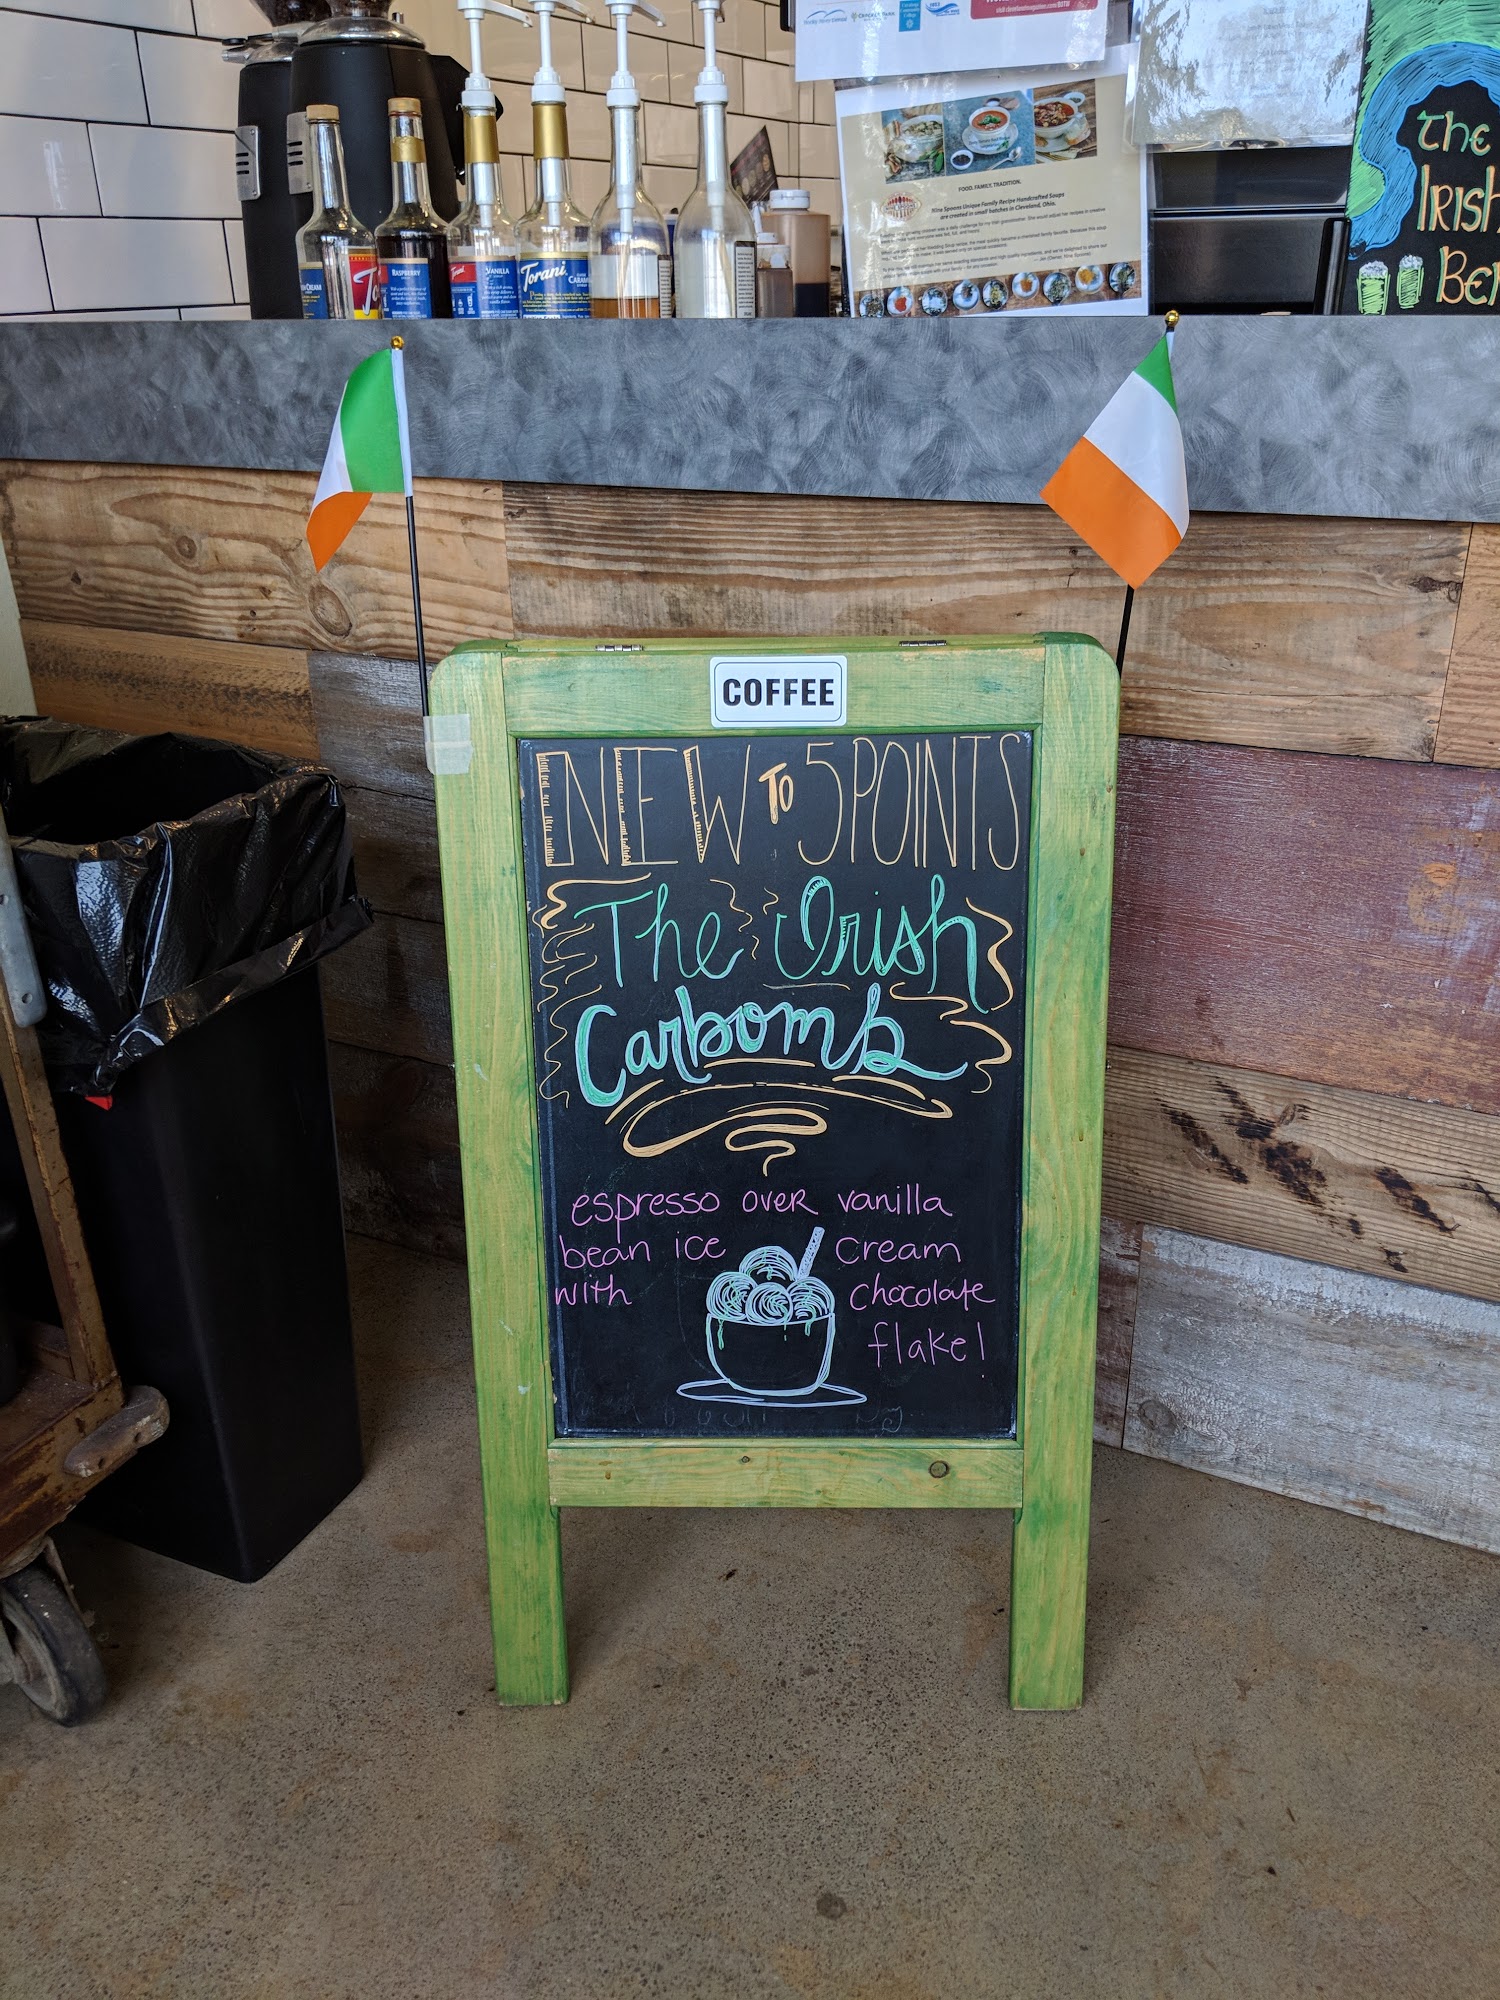 THE
IRISH
RASPBERRY
VANILLA
Torani
FOOD. FAMILY. TRADITION.
Nine Spoons Unique Family Recipe Handcrafted Soups
are created in small batches in Cleveland, Ohio.
COFFEE
NEW TO 5 POINTS
The Irish
Carbomb
espresso over vanilla
bean ice cream
with chocolate
flake!